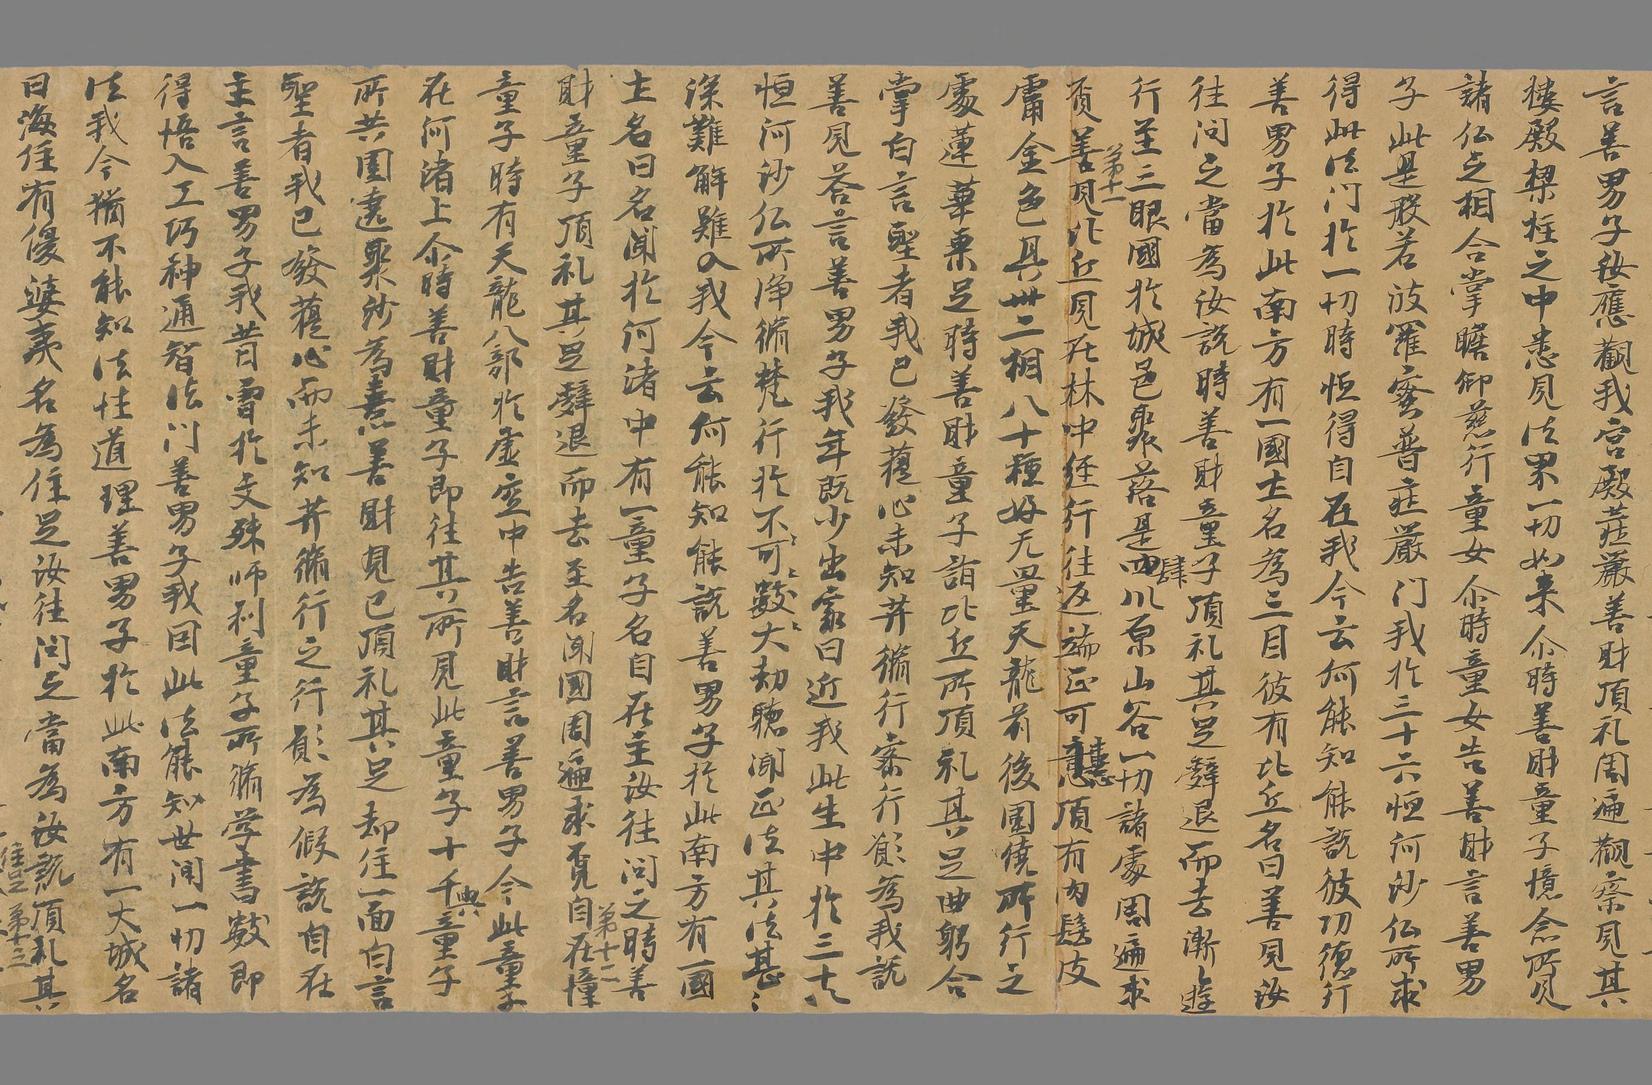 言善男子汝應觀我宮殿莊嚴善財頂礼周遍觀察見其
樓殿樑柱之中悉見法界一切如来尒時善財童子憶念所見
諸仏之相合掌瞻仰慈行童女尒時童女告善財言善男
子此是般若波羅蜜普莊嚴門我於三十六恒河沙仏所求
得此法门於一切時恒得自在我今云何能知能説彼功德行
善男子於此南方有一國土名為三目彼有比丘名曰善見汝
往問之當為汝説時善財童子頂礼其足辭退而去漸遊
行至三眼國於城邑聚落是四肆川原山谷一切諸處周遍求
第十一
覓善見比丘見在林中経行往返端正可憙頂有肉髻皮
膚金色具卅二相八十種好无量天龍前後圍繞所行之
處蓮華棗足時善財童子詣比丘所頂礼其足曲躬合
掌白言聖者我已發菩提心未知菩薩行業行願為我説
善見荅言善男子我年既少出家曰近我此生中於三十八
恒河沙仏所淨脩梵行於不可數大劫聽聞正法其法甚
深難解難入我今云何能知能説善男子於此南方有一國
土名曰名聞於河渚中有一童子名自在主汝往問之時善
第十二
財童子頂礼其足辭退而去至名聞國周遍求覓自在憧
童子時有天龍八部於虛空中告善財言善男子今此童子
在河渚上尒時善財童子即往其所見此童子十千童子
所共圍遶聚紗為喜善財見已頂礼其足却住一面白言
聖者我已發菩提心而未知菩薩脩行之行願為假説自在
主言善男子我昔曾於文殊師利童子所脩学書數即
得悟入工巧神通智法门善男子我因此法能知世间一切諸
法我今猶不能知法性道理善男子於此南方有一大城名
曰海住有優婆夷名為住足汝往問之當為汝説頂礼其
第十三